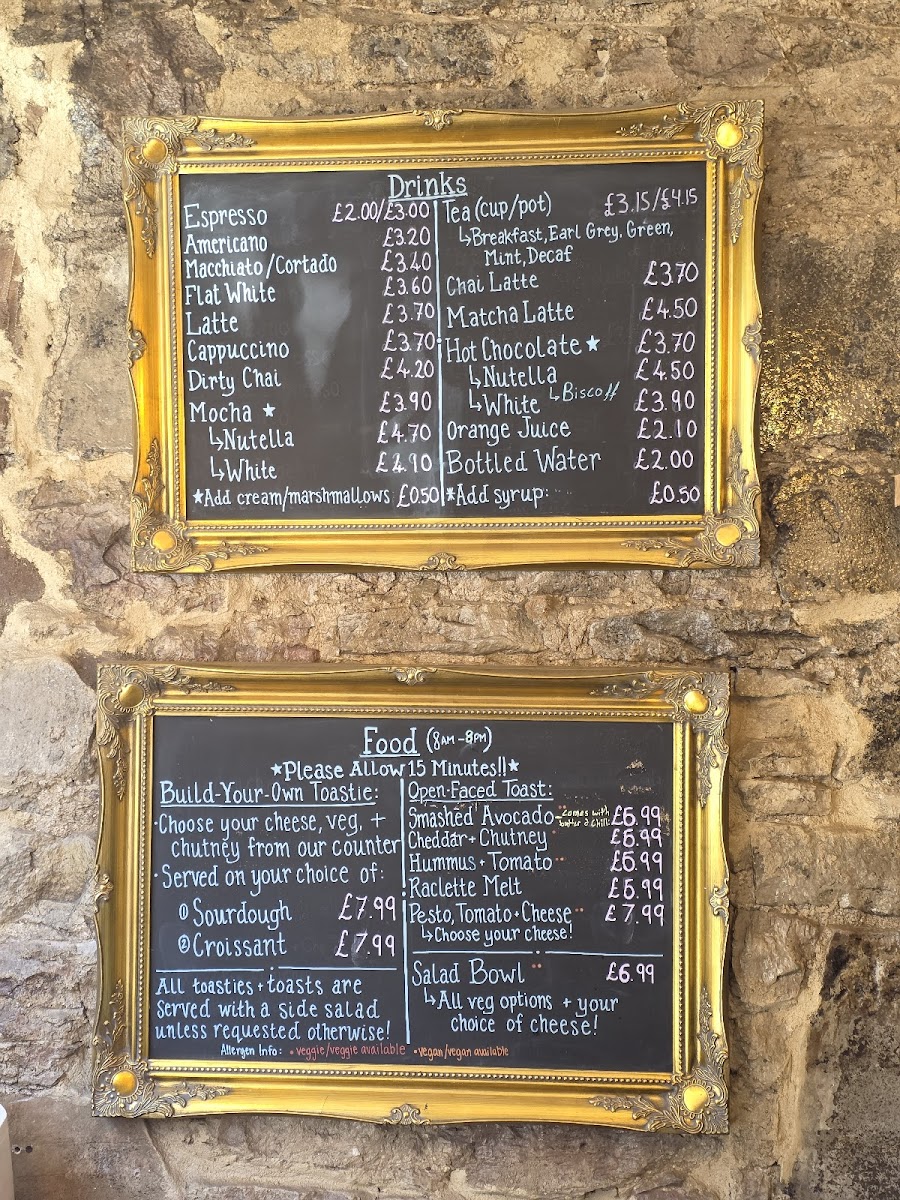 Drinks
Espresso £2.00/£3.00
Americano £3.20
Macchiato/Cortado £3.40
Flat White £3.60
Latte £3.70
Cappuccino £3.70
Dirty Chai £4.20
Mocha ★ £3.90
↳Nutella £4.70
↳White £4.10
★Add cream/marshmallows £0.50
Tea (cup/pot) £3.15/£4.15
↳Breakfast, Earl Grey, Green,
Mint, Decaf
Chai Latte £3.70
Matcha Latte £4.50
Hot Chocolate ★ £3.70
↳Nutella £4.50
↳White ↳Biscoff £3.90
Orange Juice £2.10
Bottled Water £2.00
*Add syrup: £0.50
Food (8AM-8PM)
★Please Allow 15 Minutes!!★
Build-Your-Own Toastie:
·Choose your cheese, veg, +
chutney from our counter
·Served on your choice of:
① Sourdough £7.99
② Croissant £7.99
All toasties + toasts are
served with a side salad
unless requested otherwise!
Open-Faced Toast:
Smashed Avocado - Comes with £6.99
butter & chilli
Cheddar + Chutney
Hummus + Tomato
Raclette Melt
Pesto, Tomato + Cheese £7.99
↳Choose your cheese!
Salad Bowl £6.99
↳All veg options + your
choice of cheese!
Allergen Info: • veggie/veggie available • vegan/vegan available